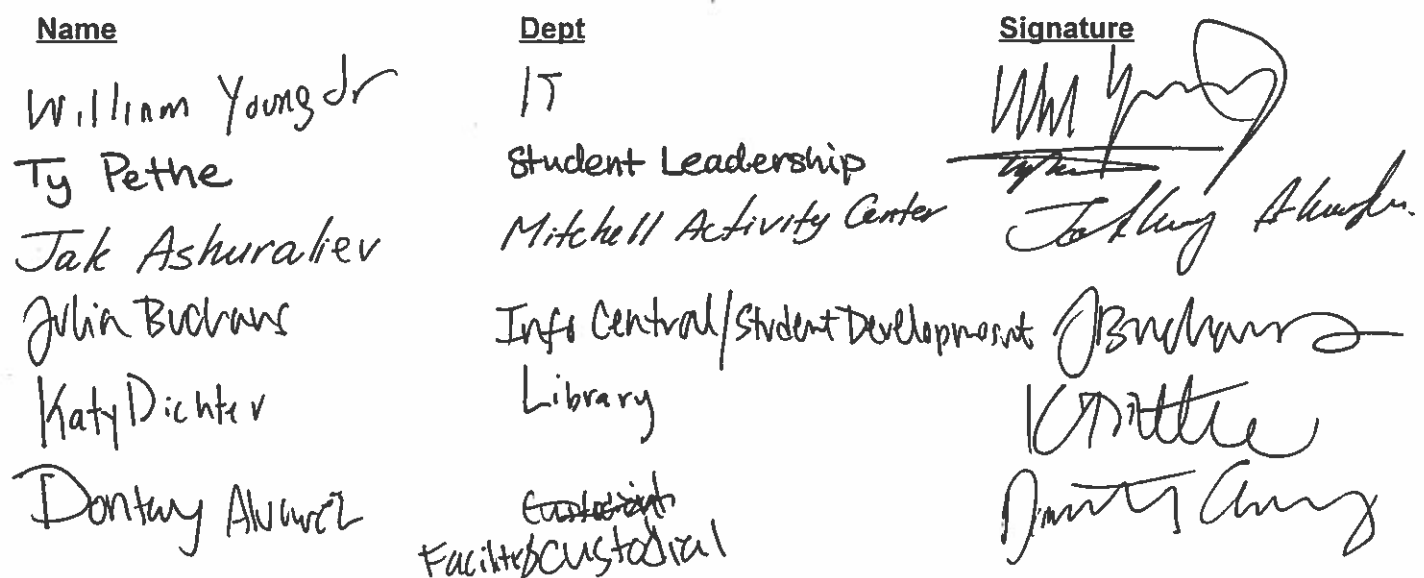 Name Dept Signature
William Young Jr IT
Ty Pethe Student Leadership
Jak Ashuraliev Mitchell Activity Center
Julia Buchans Info Central/Student Development JBuchans
Katy Dichter Library
Dontay Alvarez
Facilities/Custodial